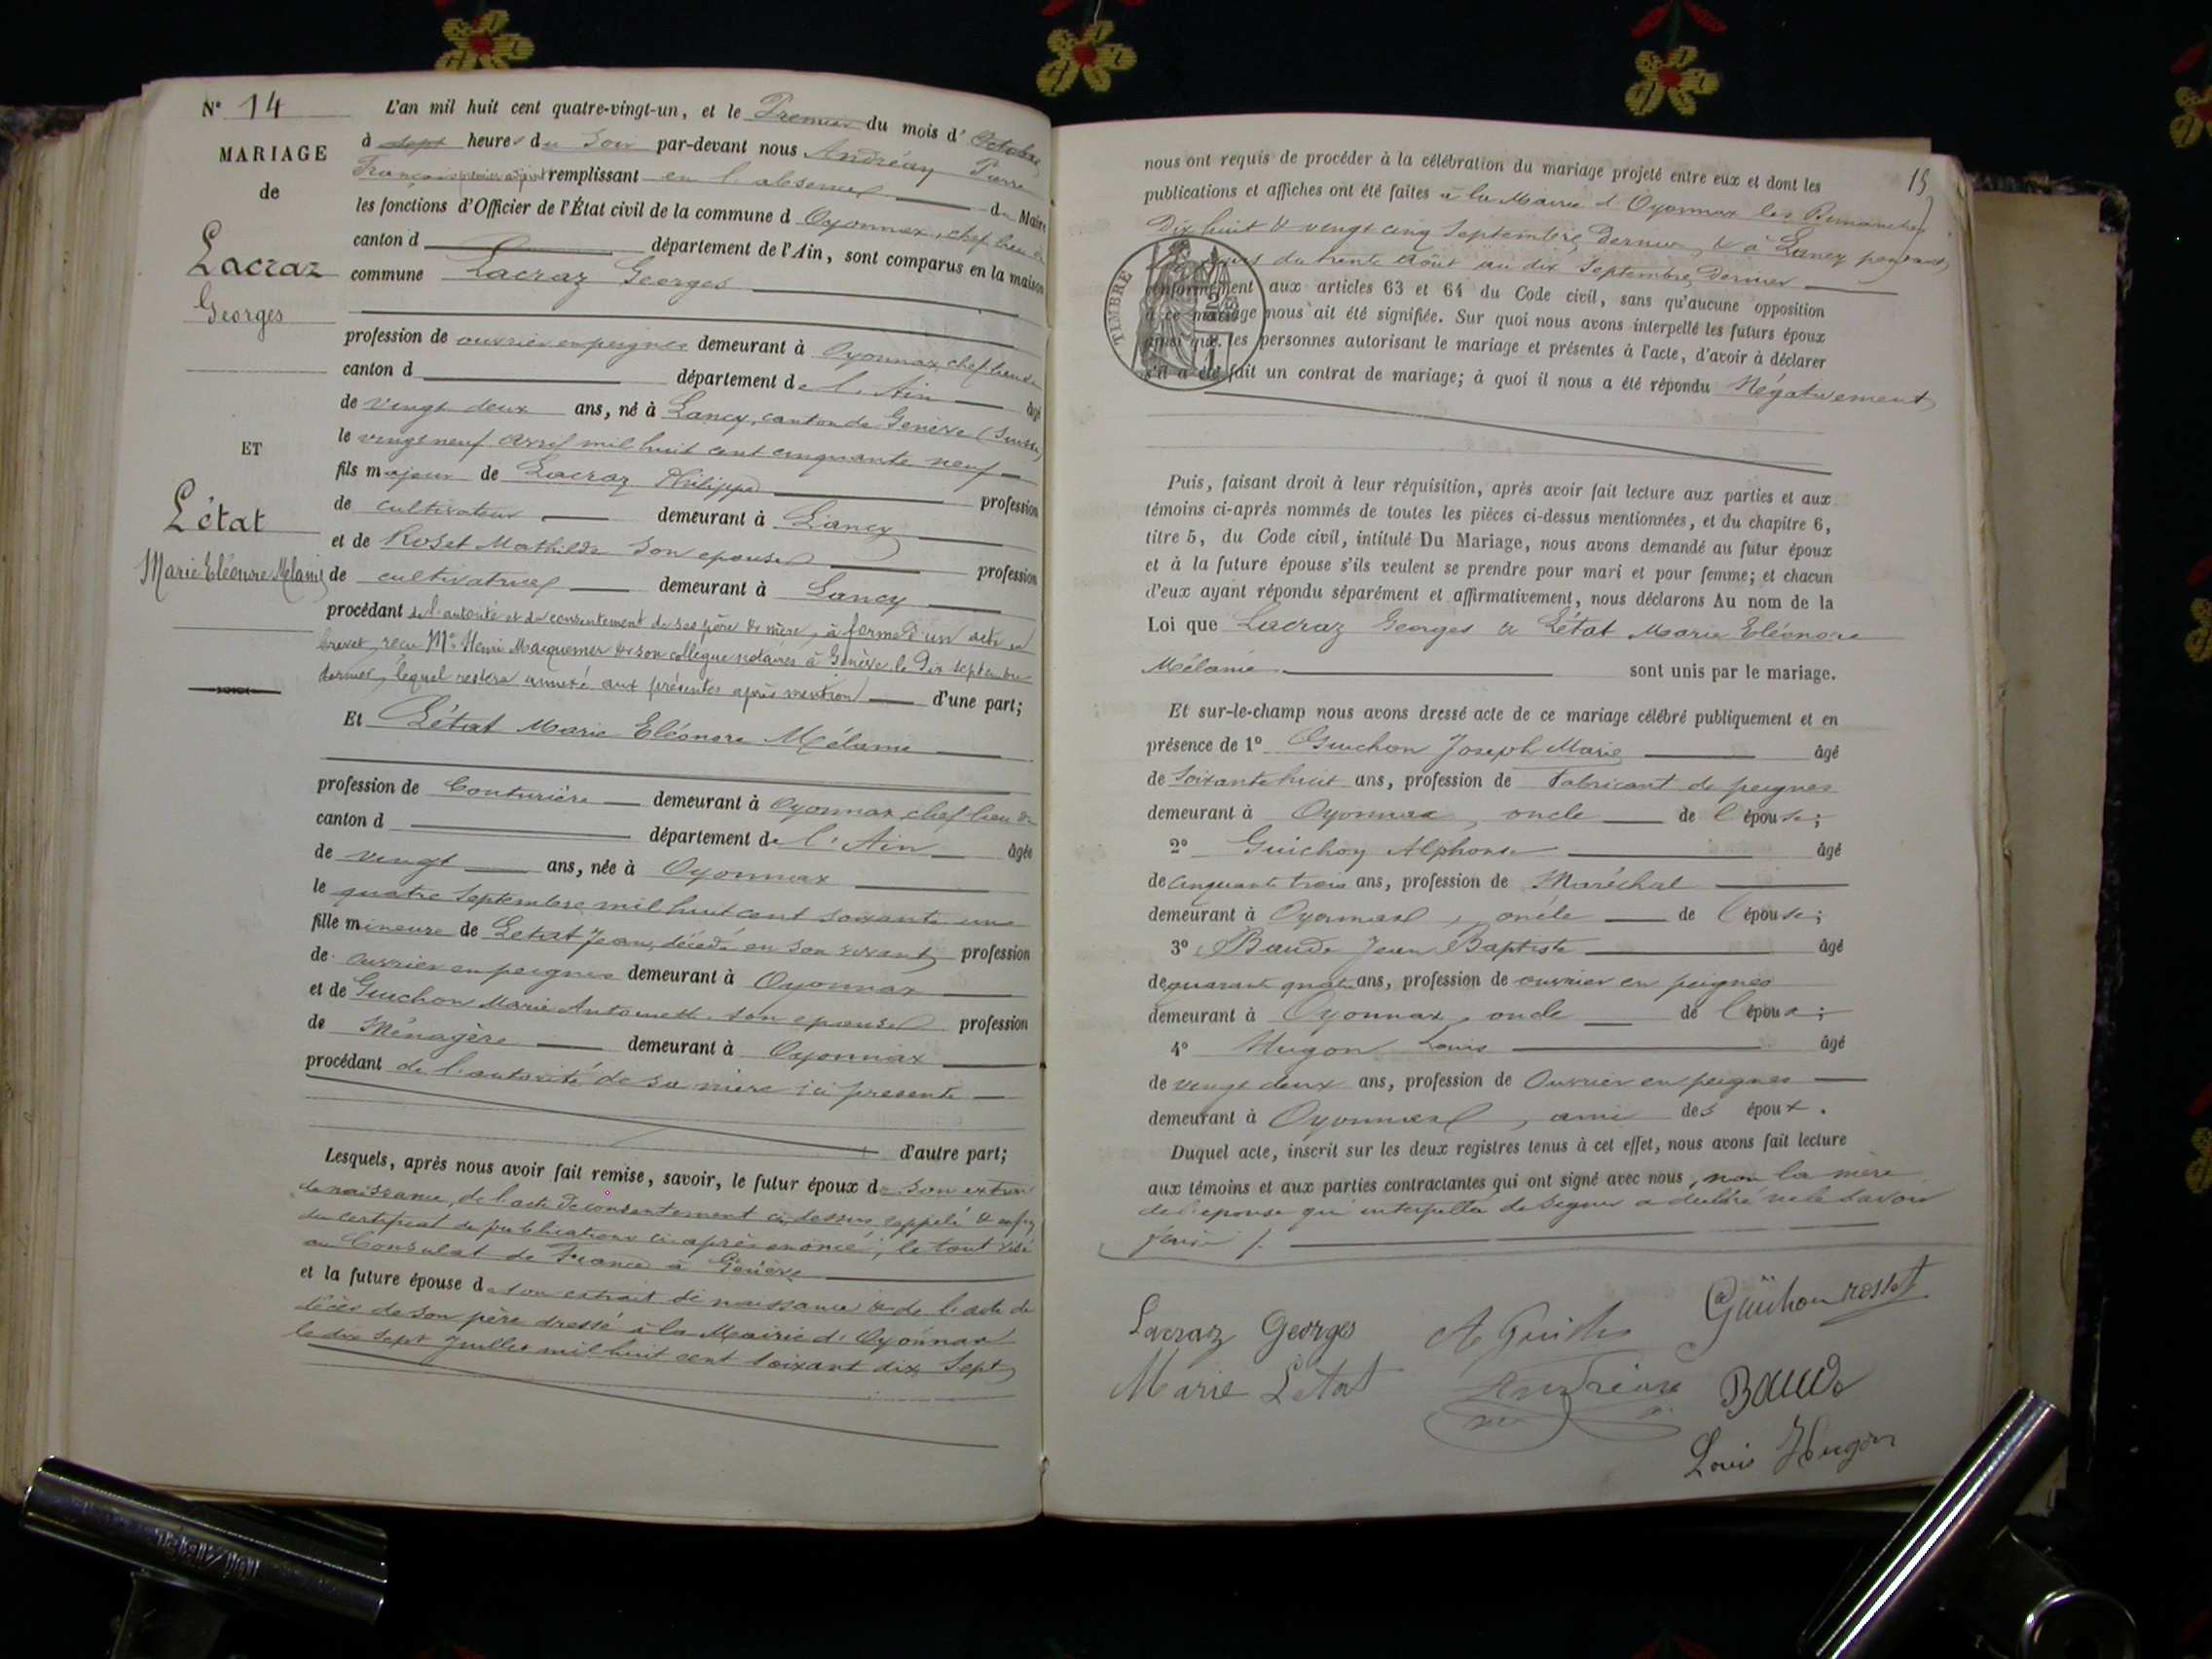 N° 14
MARIAGE
de
Lacraz
Georges
ET
Létat
Marie Eléonore Mélanie
L'an mil huit cent quatre-vingt-un, et le Premier du mois d'Octobre
à sept heures du soir par-devant nous Andréay Pierre
François premier adjoint remplissant en l'absence du Maire
les fonctions d'Officier de l'État civil de la commune d Oyonnax, chef lieu de
canton d département de l'Ain, sont comparus en la maison
commune Lacraz Georges
profession de ouvrier en peignes demeurant à Oyonnax, chef lieu de
canton d département de l'Ain âgé
de vingt deux ans, né à Lancy, canton de Genève (Suisse)
le vingt neuf avril mil huit cent cinquante neuf
fils majeur de Lacraz Philippe profession
de cultivateur demeurant à Lancy
et de Roset Mathilde son epouse profession
de cultivatrice demeurant à Lancy
procédant de l'autorité et du consentement de ses père & mère, à forme d'un acte en
brevet, reçu Me Henri Macquemer & son collègue notaires à Genève le Dix septembre
dernier, lequel restera annexé aux présentes après mention d'une part;
Et Létat Marie Eléonore Mélanie
profession de Couturière demeurant à Oyonnax, chef lieu de
canton d département de l'Ain âgée
de vingt ans, née à Oyonnax
le quatre Septembre mil huit cent soixante une
fille mineure de Letat Jean, décédé en son vivant profession
de ouvrier en peignes demeurant à Oyonnax
et de Guichon Marie Antoinette son epouse profession
de Ménagère demeurant à Oyonnax
procédant de l'autorité de sa mère ici presente
d'autre part;
Lesquels, après nous avoir fait remise, savoir, le futur époux de son extrait
de naissance, de l'acte de consentement ci-dessus rappelé & enfin
du certificat de publications ci après enoncé, le tout visé
au Consulat de France à Genève
et la future épouse de son extrait de naissance & de l'acte de
décès de son père dressé à la Mairie d'Oyonnax
le dix sept Juillet mil huit cent soixant dix Sept
15
nous ont requis de procéder à la célébration du mariage projeté entre eux et dont les
publications et affiches ont été faites à la Mairie d'Oyonnax les Dimanches
Dix huit & vingt cinq Septembre Dernier, & à Lancy pendant
jours du trente Août au dix Septembre Dernier
TIMBRE
conformément aux articles 63 et 64 du Code civil, sans qu'aucune opposition
à ce mariage nous ait été signifiée. Sur quoi nous avons interpellé les futurs époux
ainsi que les personnes autorisant le mariage et présentes à l'acte, d'avoir à déclarer
s'il a été fait un contrat de mariage; à quoi il nous a été répondu Négativement
Puis, faisant droit à leur réquisition, après avoir fait lecture aux parties et aux
témoins ci-après nommés de toutes les pièces ci-dessus mentionnées, et du chapitre 6,
titre 5, du Code civil, intitulé Du Mariage, nous avons demandé au futur époux
et à la future épouse s'ils veulent se prendre pour mari et pour femme; et chacun
d'eux ayant répondu séparément et affirmativement, nous déclarons Au nom de la
Loi que Lacraz Georges & Létat Marie Eléonore
Mélanie sont unis par le mariage.
Et sur-le-champ nous avons dressé acte de ce mariage célébré publiquement et en
présence de 1° Guichon Joseph Marie âgé
de Soixante huit ans, profession de Fabricant de peignes
demeurant à Oyonnax, oncle de l'épouse;
2° Guichon Alphonse âgé
de cinquante trois ans, profession de Maréchal
demeurant à Oyonnax, oncle de l'épouse;
3° Baude Jean Baptiste âgé
de quarante quatre ans, profession de ouvrier en peignes
demeurant à Oyonnax, oncle de l'époux;
4° Hugon Louis âgé
de vingt deux ans, profession de Ouvrier en peignes
demeurant à Oyonnax, ami des époux.
Duquel acte, inscrit sur les deux registres tenus à cet effet, nous avons fait lecture
aux témoins et aux parties contractantes qui ont signé avec nous, non la mère
de l'epouse qui interpellée de signer a déclaré ne le savoir
faire /.
Lacraz Georges
Guichon rosset
Marie Létat
Andréay
Baude
Louis Hugon